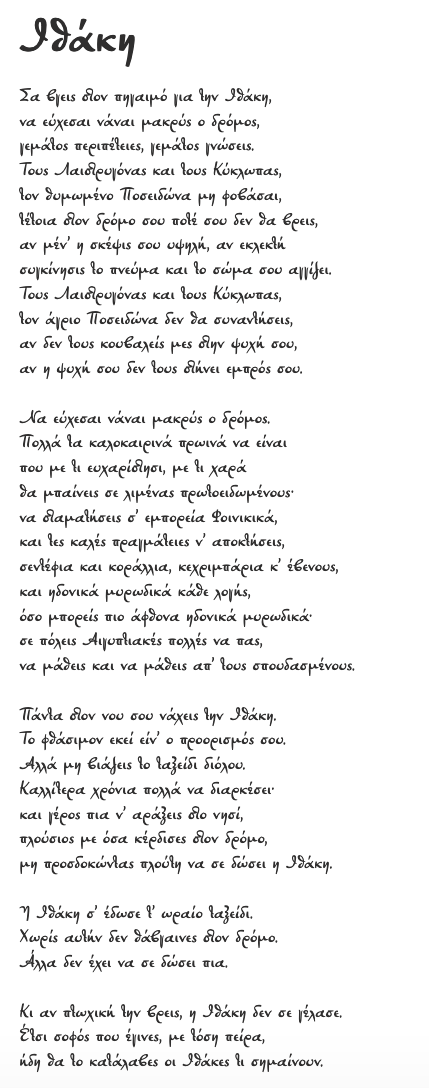 Ιθάκη
Σα βγεις στον πηγαιμό για την Ιθάκη,
να εύχεσαι νάναι μακρύς ο δρόμος,
γεμάτος περιπέτειες, γεμάτος γνώσεις.
Τους Λαιστρυγόνας και τους Κύκλωπας,
τον θυμωμένο Ποσειδώνα μη φοβάσαι,
τέτοια στον δρόμο σου ποτέ σου δεν θα βρεις,
αν μέν' η σκέψις σου υψηλή, αν εκλεκτή
συγκίνησις το πνεύμα και το σώμα σου αγγίζει.
Τους Λαιστρυγόνας και τους Κύκλωπας,
τον άγριο Ποσειδώνα δεν θα συναντήσεις,
αν δεν τους κουβαλείς μες στην ψυχή σου,
αν η ψυχή σου δεν τους στήνει εμπρός σου.
Να εύχεσαι νάναι μακρύς ο δρόμος.
Πολλά τα καλοκαιρινά πρωινά να είναι
που με τι ευχαρίστησι, με τι χαρά
θα μπαίνεις σε λιμένας πρωτοειδωμένους·
να σταματήσεις σ' εμπορεία Φοινικικά,
και τες καλές πραγμάτειες ν' αποκτήσεις,
σεντέφια και κοράλλια, κεχριμπάρια κ' έβενους,
και ηδονικά μυρωδικά κάθε λογής,
όσο μπορείς πιο άφθονα ηδονικά μυρωδικά·
σε πόλεις Αιγυπτιακές πολλές να πας,
να μάθεις και να μάθεις απ' τους σπουδασμένους.
Πάντα στον νου σου νάχεις την Ιθάκη.
Το φθάσιμον εκεί είν' ο προορισμός σου.
Αλλά μη βιάζεις το ταξείδι διόλου.
Καλλίτερα χρόνια πολλά να διαρκέσει·
και γέρος πια ν' αράξεις στο νησί,
πλούσιος με όσα κέρδισες στον δρόμο,
μη προσδοκώντας πλούτη να σε δώσει η Ιθάκη.
Η Ιθάκη σ' έδωσε τ' ωραίο ταξείδι.
Χωρίς αυτήν δεν θάβγαινες στον δρόμο.
Άλλα δεν έχει να σε δώσει πια.
Κι αν πτωχική την βρεις, η Ιθάκη δεν σε γέλασε.
Έτσι σοφός που έγινες, με τόση πείρα,
ήδη θα το κατάλαβες οι Ιθάκες τι σημαίνουν.